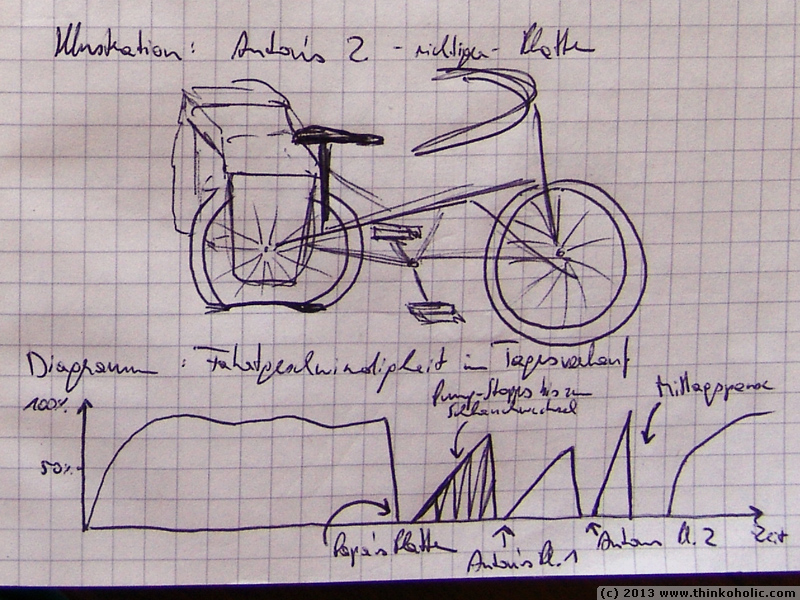 Illustration: Anton's 2 - richtiger - Platten
Diagramm: Fahrtgeschwindigkeit im Tagesverlauf
Pump-Stopps bis zum
Schlauchwechsel
Mittagspause
100%
50%
Papa's Platten
Anton's Pl. 1
Anton's Pl. 2
Zeit
(c) 2013 www.thinkoholic.com